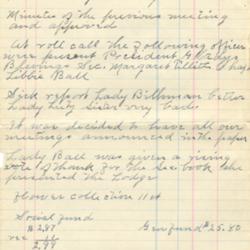 Minutes of the previous meeting
and approved
At roll call the following officers
were present President
Sec. Margaret
Libbie Ball
Sick report Lady Billman better
Lady
It was decided to have all our
meetings announced in the paper
Lady Ball was given a rising
vote of thank for the book she
presented the Lodge
flower collection 11¢
Social fund
$2.87 Gen fund $25.80
rec
2.99